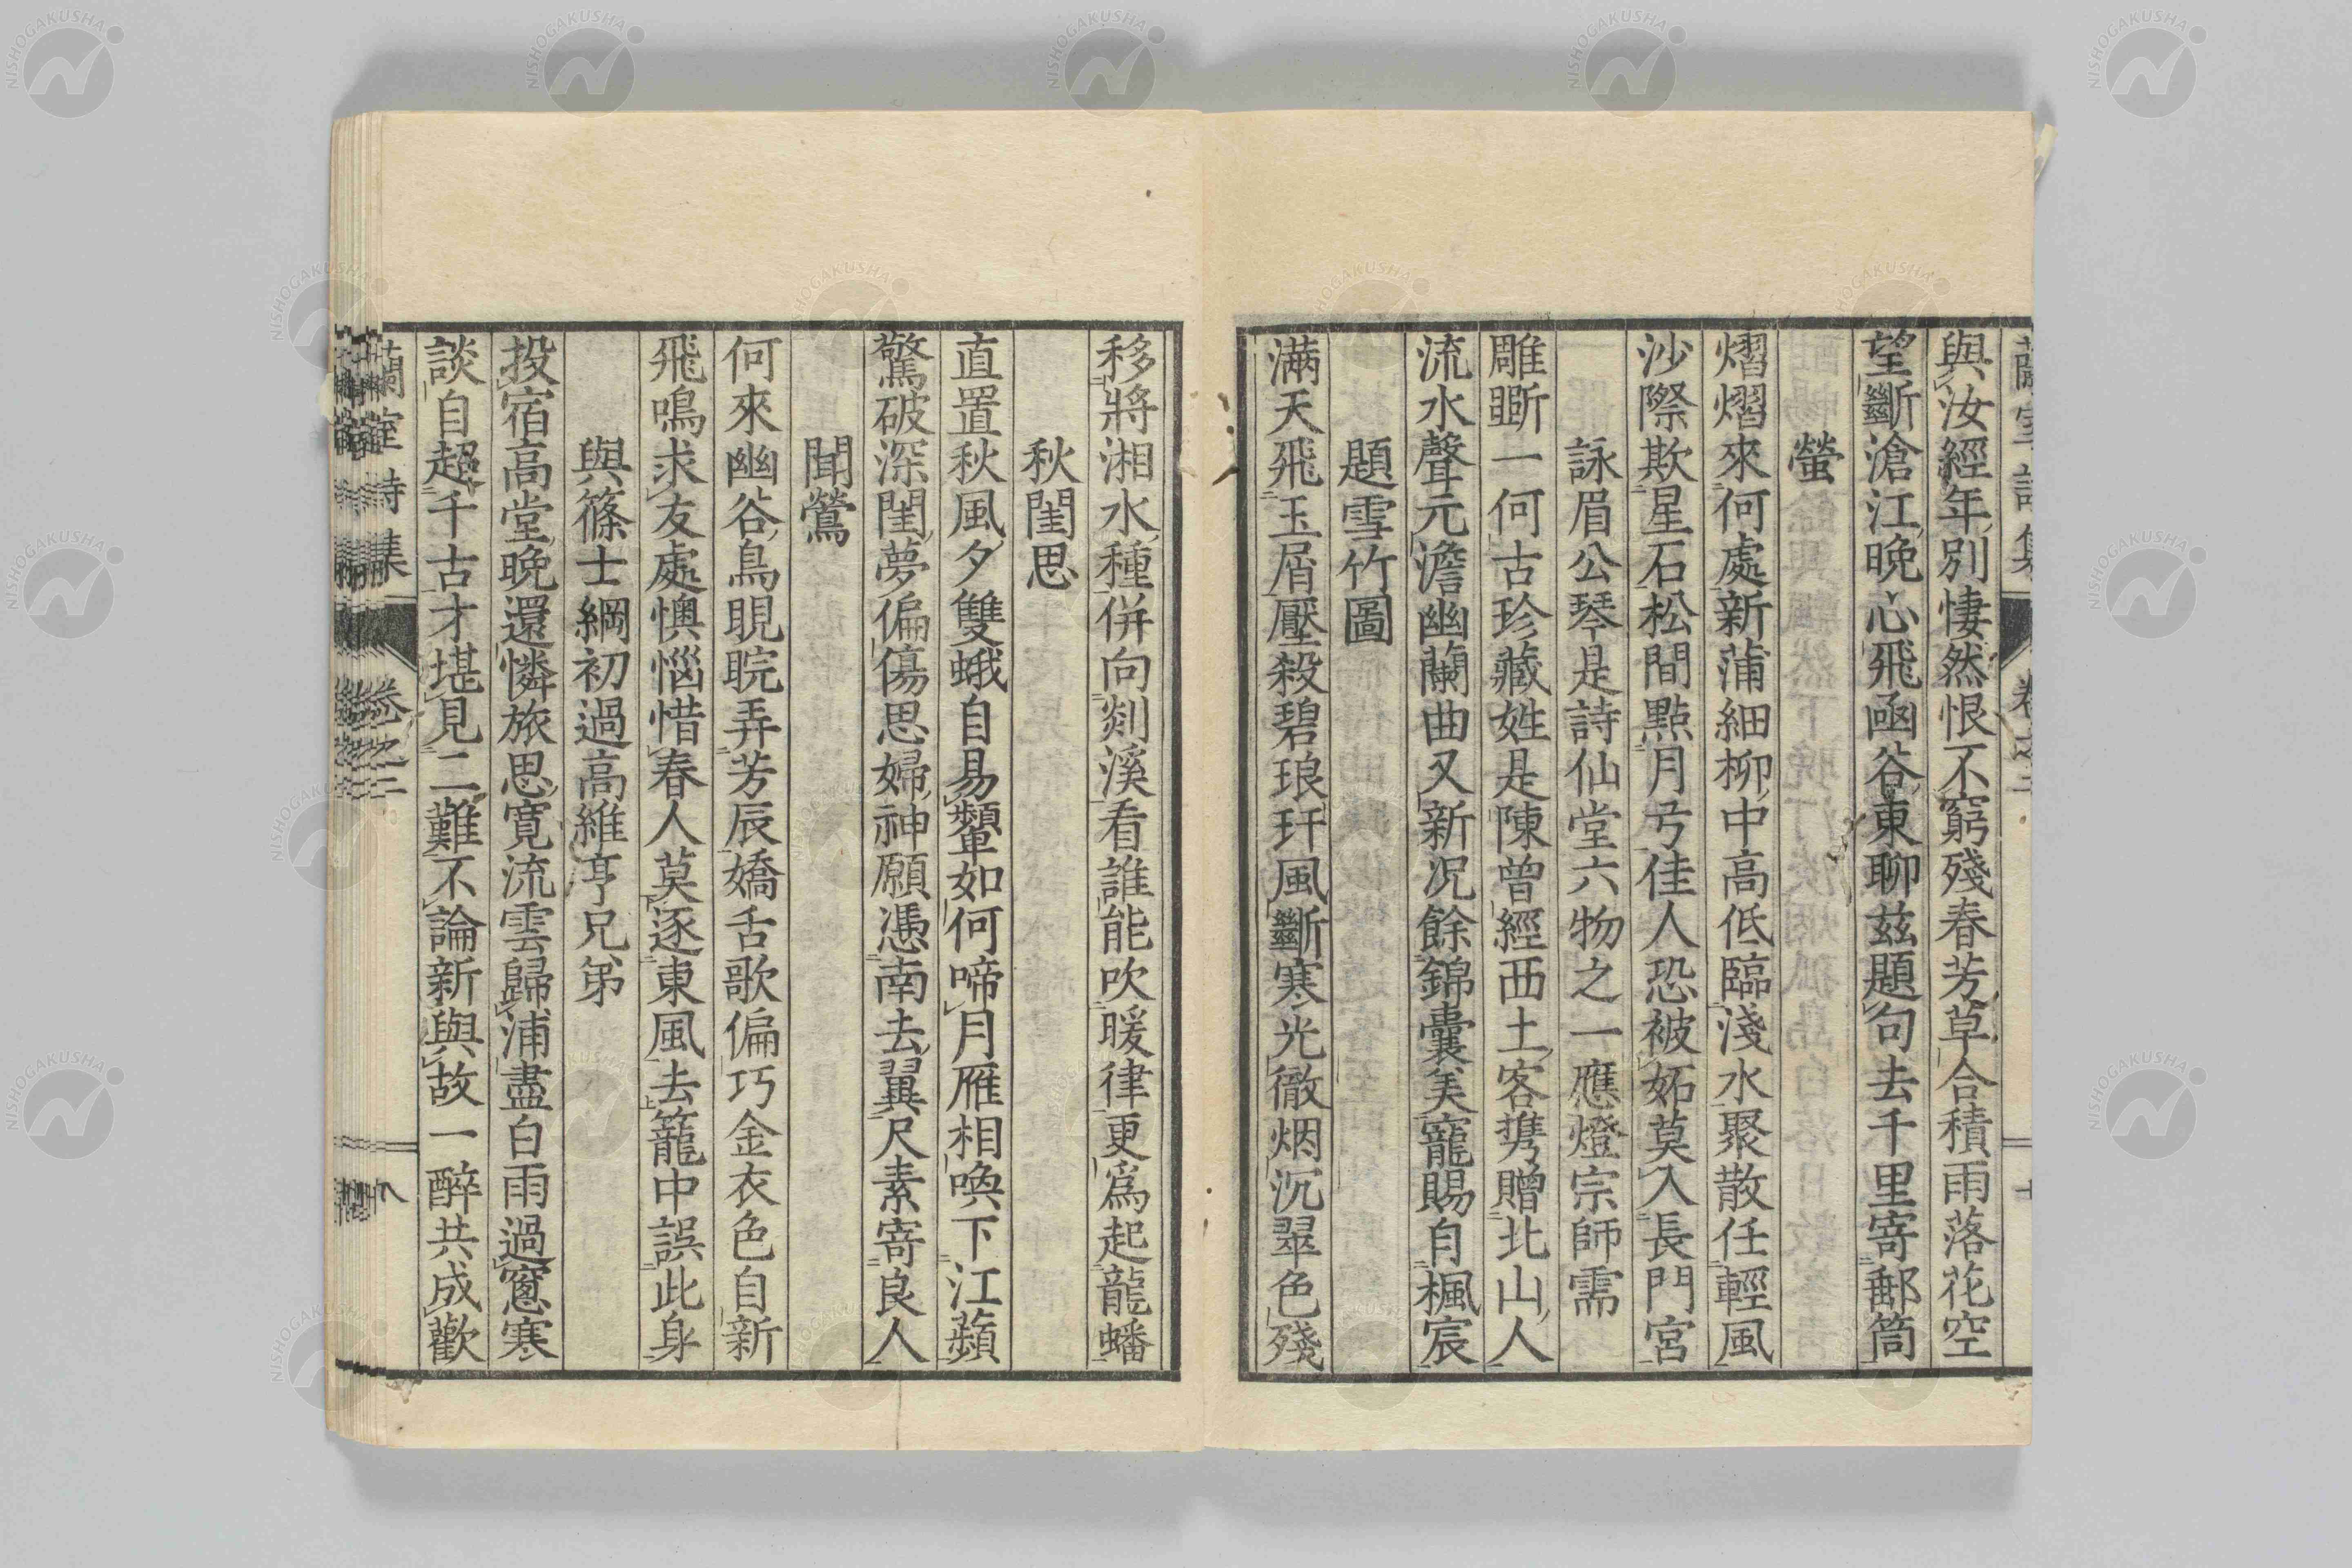 與汝經年別悽然恨不窮殘春芳草合積雨落花空
望斷滄江晚心飛函谷東聊茲題句去千里寄郵筒
螢
熠熠來何處新蒲細柳中高低臨淺水聚散任輕風
沙際欺星石松間點月弓佳人恐被妬莫入長門宮
詠眉公琴是詩仙堂六物之一應燈宗師需
雕斲一何古珍藏姓是陳曾經西土客携贈北山人
流水聲元澹幽蘭曲又新況餘錦囊美寵賜自楓宸
題雪竹圖
滿天飛玉屑壓殺碧琅玕風斷寒光徹烟沉翠色殘
移將湘水種併向剡溪看誰能吹暖律更為起龍蟠
秋閨思
直置秋風夕雙蛾自易顰如何啼月雁相喚下江蘋
驚破深閨夢偏傷思婦神願憑南去翼尺素寄良人
聞鶯
何來幽谷鳥睍睆弄芳辰嬌舌歌偏巧金衣色自新
飛鳴求友處懊惱惜春人莫逐東風去籠中誤此身
與篠士綱初過高維亨兄弟
投宿高堂晚還憐旅思寬流雲歸浦盡白雨過窻寒
談自超千古才堪見二難不論新與故一醉共成歡
蘭室詩集 卷之二 八
NISHOGAKUSHA